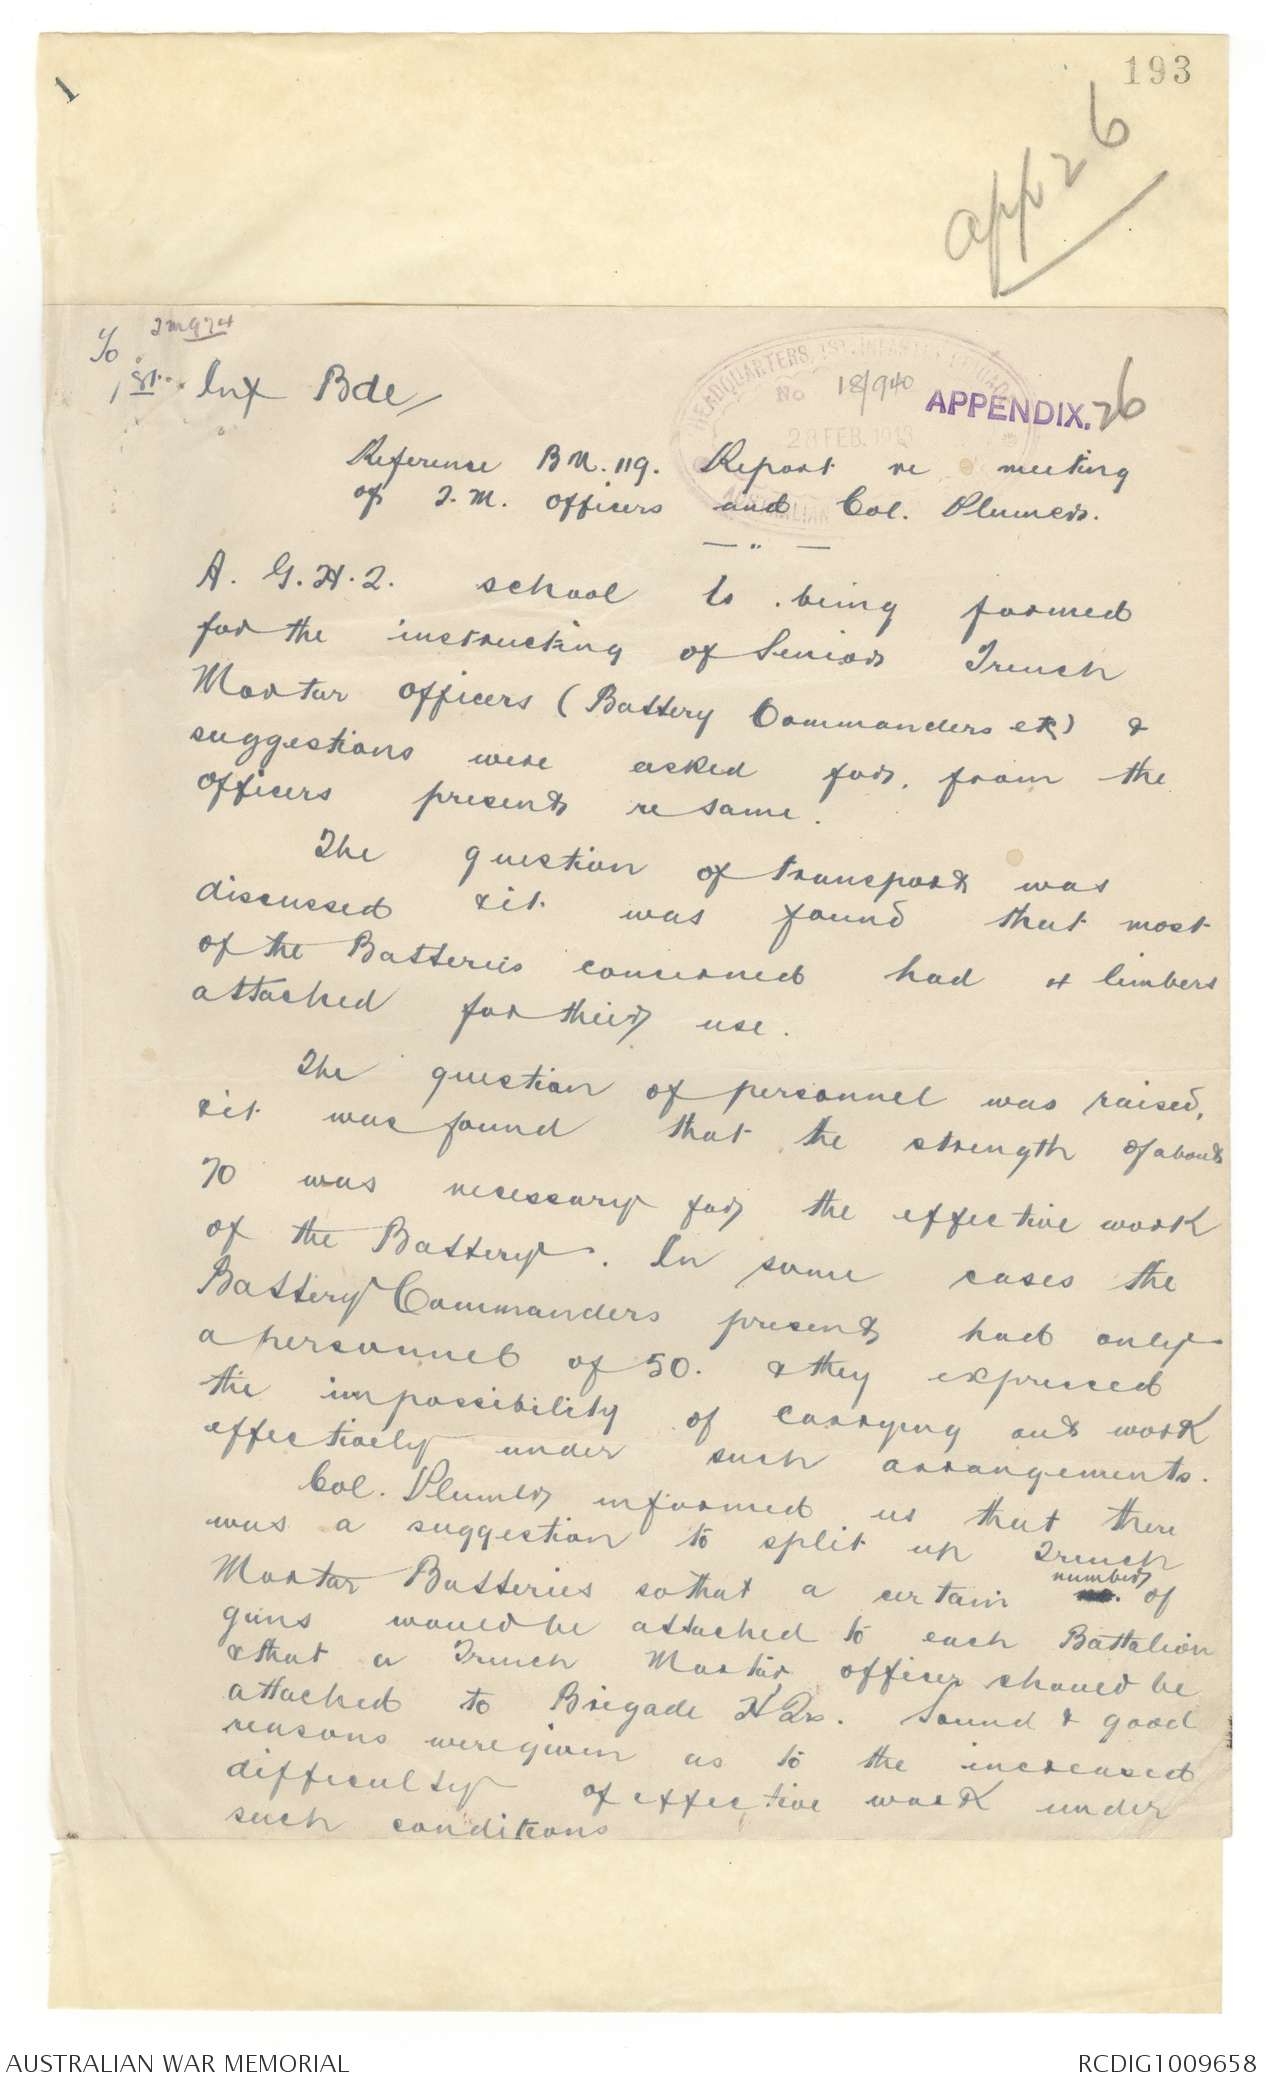 193
1
app 26
To
TM974
1st. Inf Bde/
HEADQUARTERS, 1ST. INFANTRY BRIGADE
No 18/940
28 FEB. 1918
AUSTRALIAN
APPENDIX. 26
Reference BM. 119. Report re meeting
of T.M. Officers and Col. Plumer.
— " —
A. G.H.Q. school is being formed
for the instructing of Senior Trench
Mortar Officers (Battery Commanders etc) &
suggestions were asked for, from the
officers present re same.
The question of transport was
discussed & it was found that most
of the Batteries concerned had 4 limbers
attached for their use.
The question of personnel was raised,
& it was found that the strength of about
70 was necessary for the effective work
of the Battery. In some cases the
Battery Commanders present had only
a personnel of 50. & they expressed
the impossibility of carrying out work
effectively under such arrangements.
Col. Plumer informed us that there
was a suggestion to split up Trench
Mortar Batteries so that a certain number of
guns would be attached to each Battalion
& that a Trench Mortar officer should be
attached to Brigade HQrs. Sound & good
reasons were given as to the increased
difficulty of effective work under
such conditions
AUSTRALIAN WAR MEMORIAL
RCDIG1009658